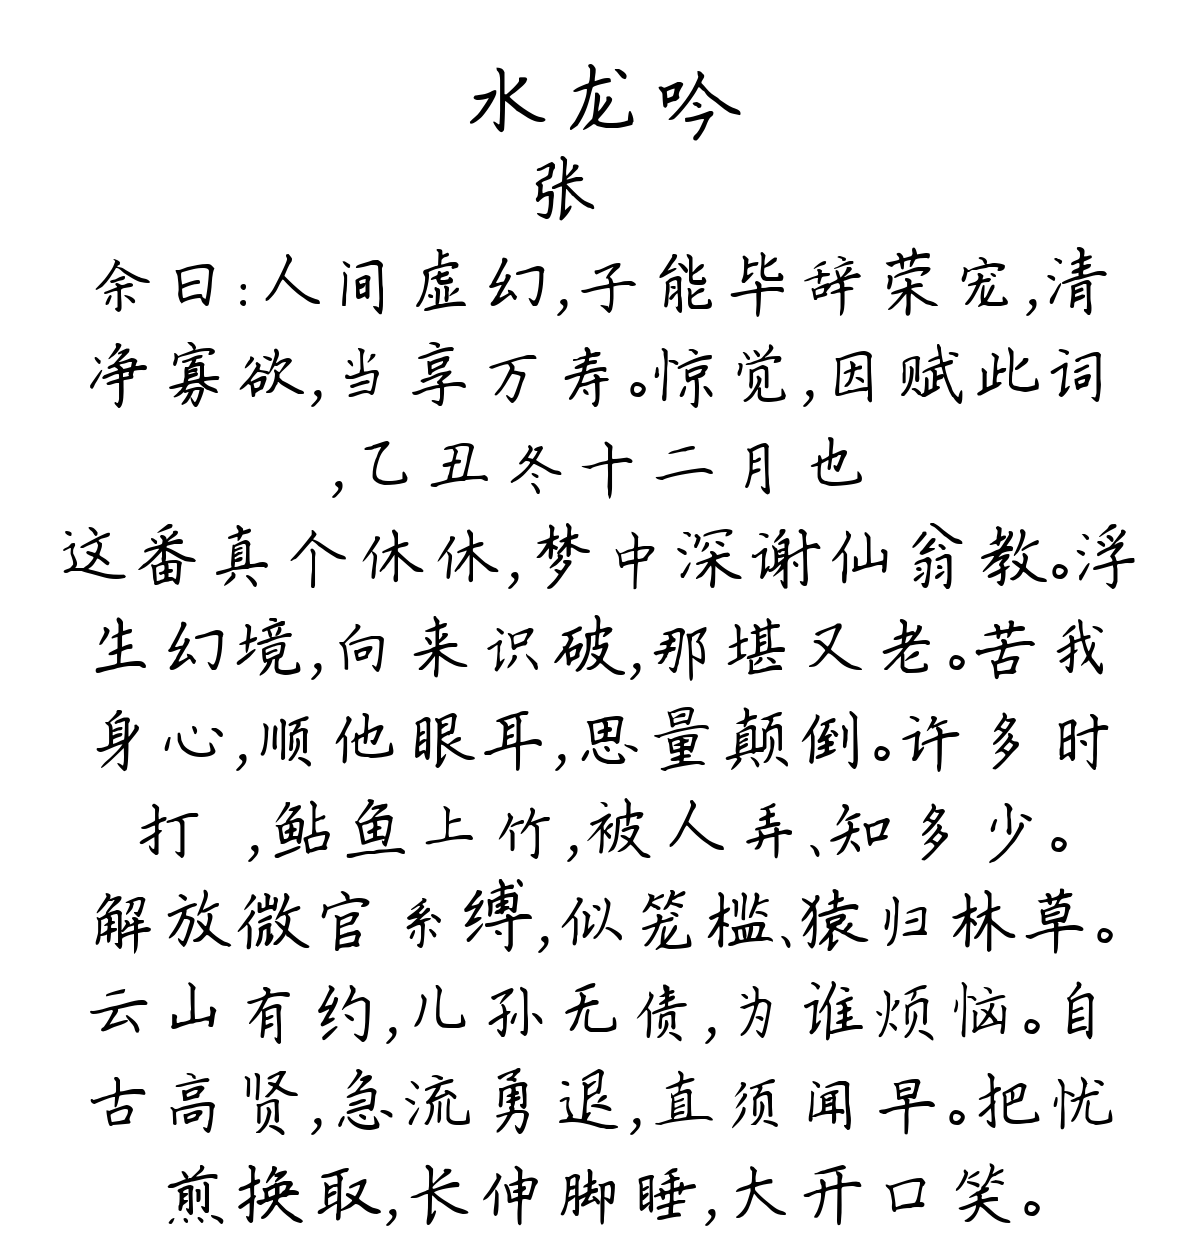 水龙吟
张
余曰:人间虚幻,子能毕辞荣宠,清
净寡欲,当享万寿。惊觉,因赋此词
,乙丑冬十二月也
这番真个休休,梦中深谢仙翁教。浮
生幻境,向来识破,那堪又老。苦我
身心,顺他眼耳,思量颠倒。许多时
打 ,鲇鱼上竹,被人弄、知多少。
解放微官系缚,似笼槛、猿归林草。
云山有约,儿孙无债,为谁烦恼。自
古高贤,急流勇退,直须闻早。把忧
煎换取,长伸脚睡,大开口笑。